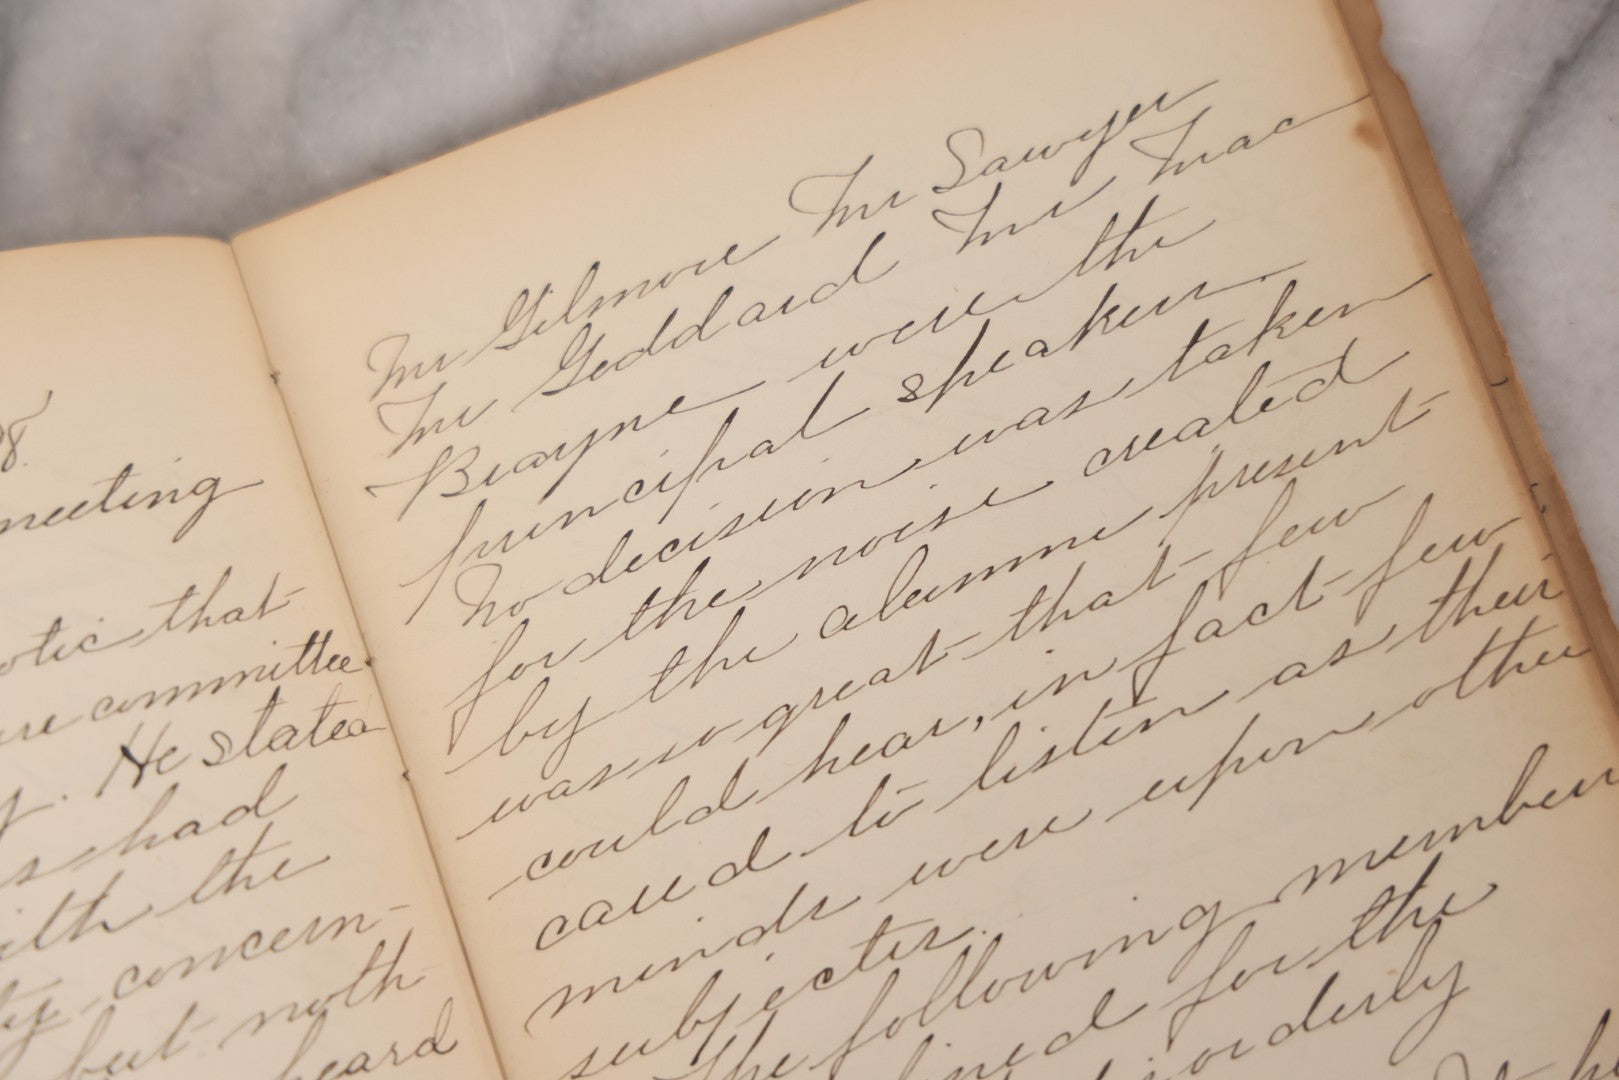 8.
meeting
that
committee
. He stated
had
with the
concern-
but noth
heard
Mr Gilmore Mr Sawyer
Mr Goddard Mr Mac
Brayne were the
principal speakers.
No decision was taken
for the noise created
by the alumne present
was so great that few
could hear, in fact few
cared to listen as their
minds were upon other
subjects.
The following members
for the